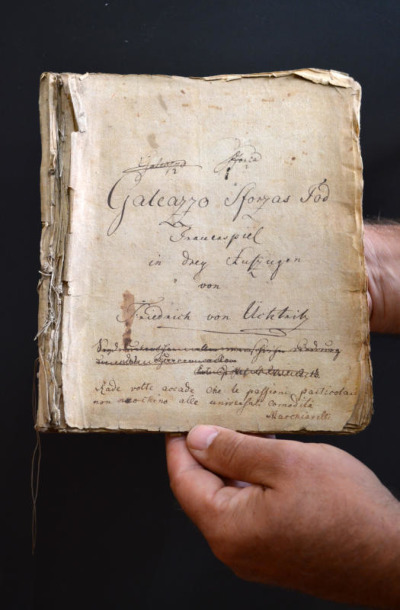 Galeazzo Sforza
Galeazzo Sforzas Tod
Trauerspiel
in drey Aufzügen
von
Friedrich von Uchtritz
Rade volte accade che le passioni particolari
non nocciano alle universali comodità
Macchiavelli